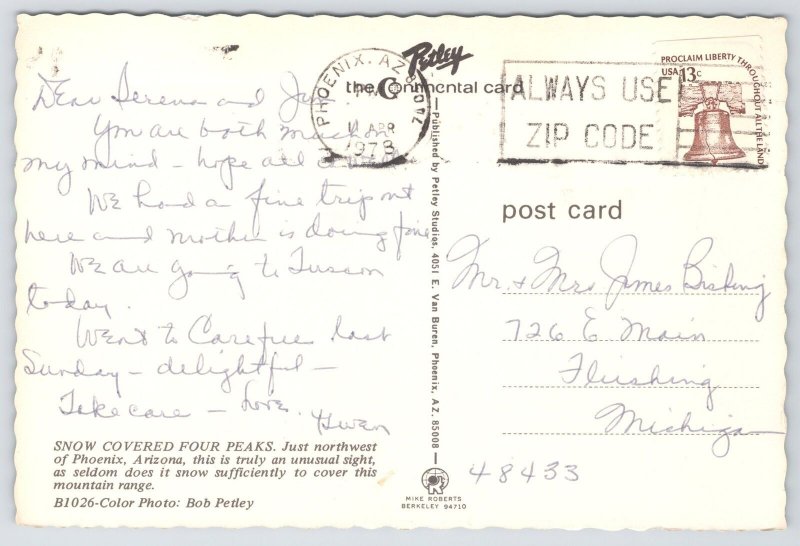 Dear Serena and Jim
You are both much on
my mind - hope all
We had a fine trip out
here and mother is doing fine
We are going to Tusson
today.
Went to Carefree last
Sunday - delightful -
Take care - Love.
Gwen
SNOW COVERED FOUR PEAKS. Just northwest
of Phoenix, Arizona, this is truly an unusual sight,
as seldom does it snow sufficiently to cover this
mountain range.
B1026-Color Photo: Bob Petley
Petley
the Continental card
PHOENIX, AZ 850
PM
APR
1978
ALWAYS USE
ZIP CODE
PROCLAIM LIBERTY THROUGHOUT ALL THE LAND
USA 13c
Published by Petley Studios, 4051 E. Van Buren, Phoenix, AZ. 85008
post card
Mr. + Mrs James Bisbing
726 E Main
Flushing
Michigan
48433
MIKE ROBERTS
BERKELEY 94710